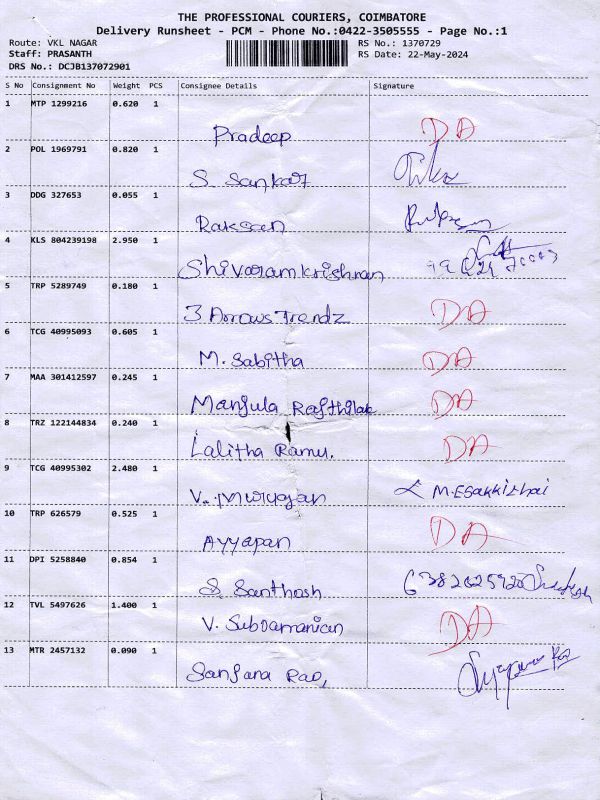 THE PROFESSIONAL COURIERS, COIMBATORE
Delivery Runsheet - PCM - Phone No.:0422-3505555 - Page No.:1
Route: VKL NAGAR RS No.: 1370729
Staff: PRASANTH RS Date: 22-May-2024
DRS No.: DCJB137072901
S No Consignment No Weight PCS Consignee Details Signature
1 MTP 1299216 0.620 1
Pradeep DA
2 POL 1969791 0.820 1
S. Sankar
3 DDG 327653 0.055 1
Raksan
4 KLS 804239198 2.950 1
Shivaramkrishnan
5 TRP 5289749 0.180 1
3 Arrows Trendz DA
6 TCG 40995093 0.605 1
M. Sabitha DA
7 MAA 301412597 0.245 1
Manjula Rajthilak DA
8 TRZ 122144834 0.240 1
Lalitha Ramu. DA
9 TCG 40995302 2.480 1
V. Murugan M.ESakkithai
10 TRP 626579 0.525 1
Ayyapan DA
11 DPI 5258840 0.854 1
S. Santhosh
12 TVL 5497626 1.400 1
V. Subramanian DA
13 MTR 2457132 0.090 1
Sanjana Rao,